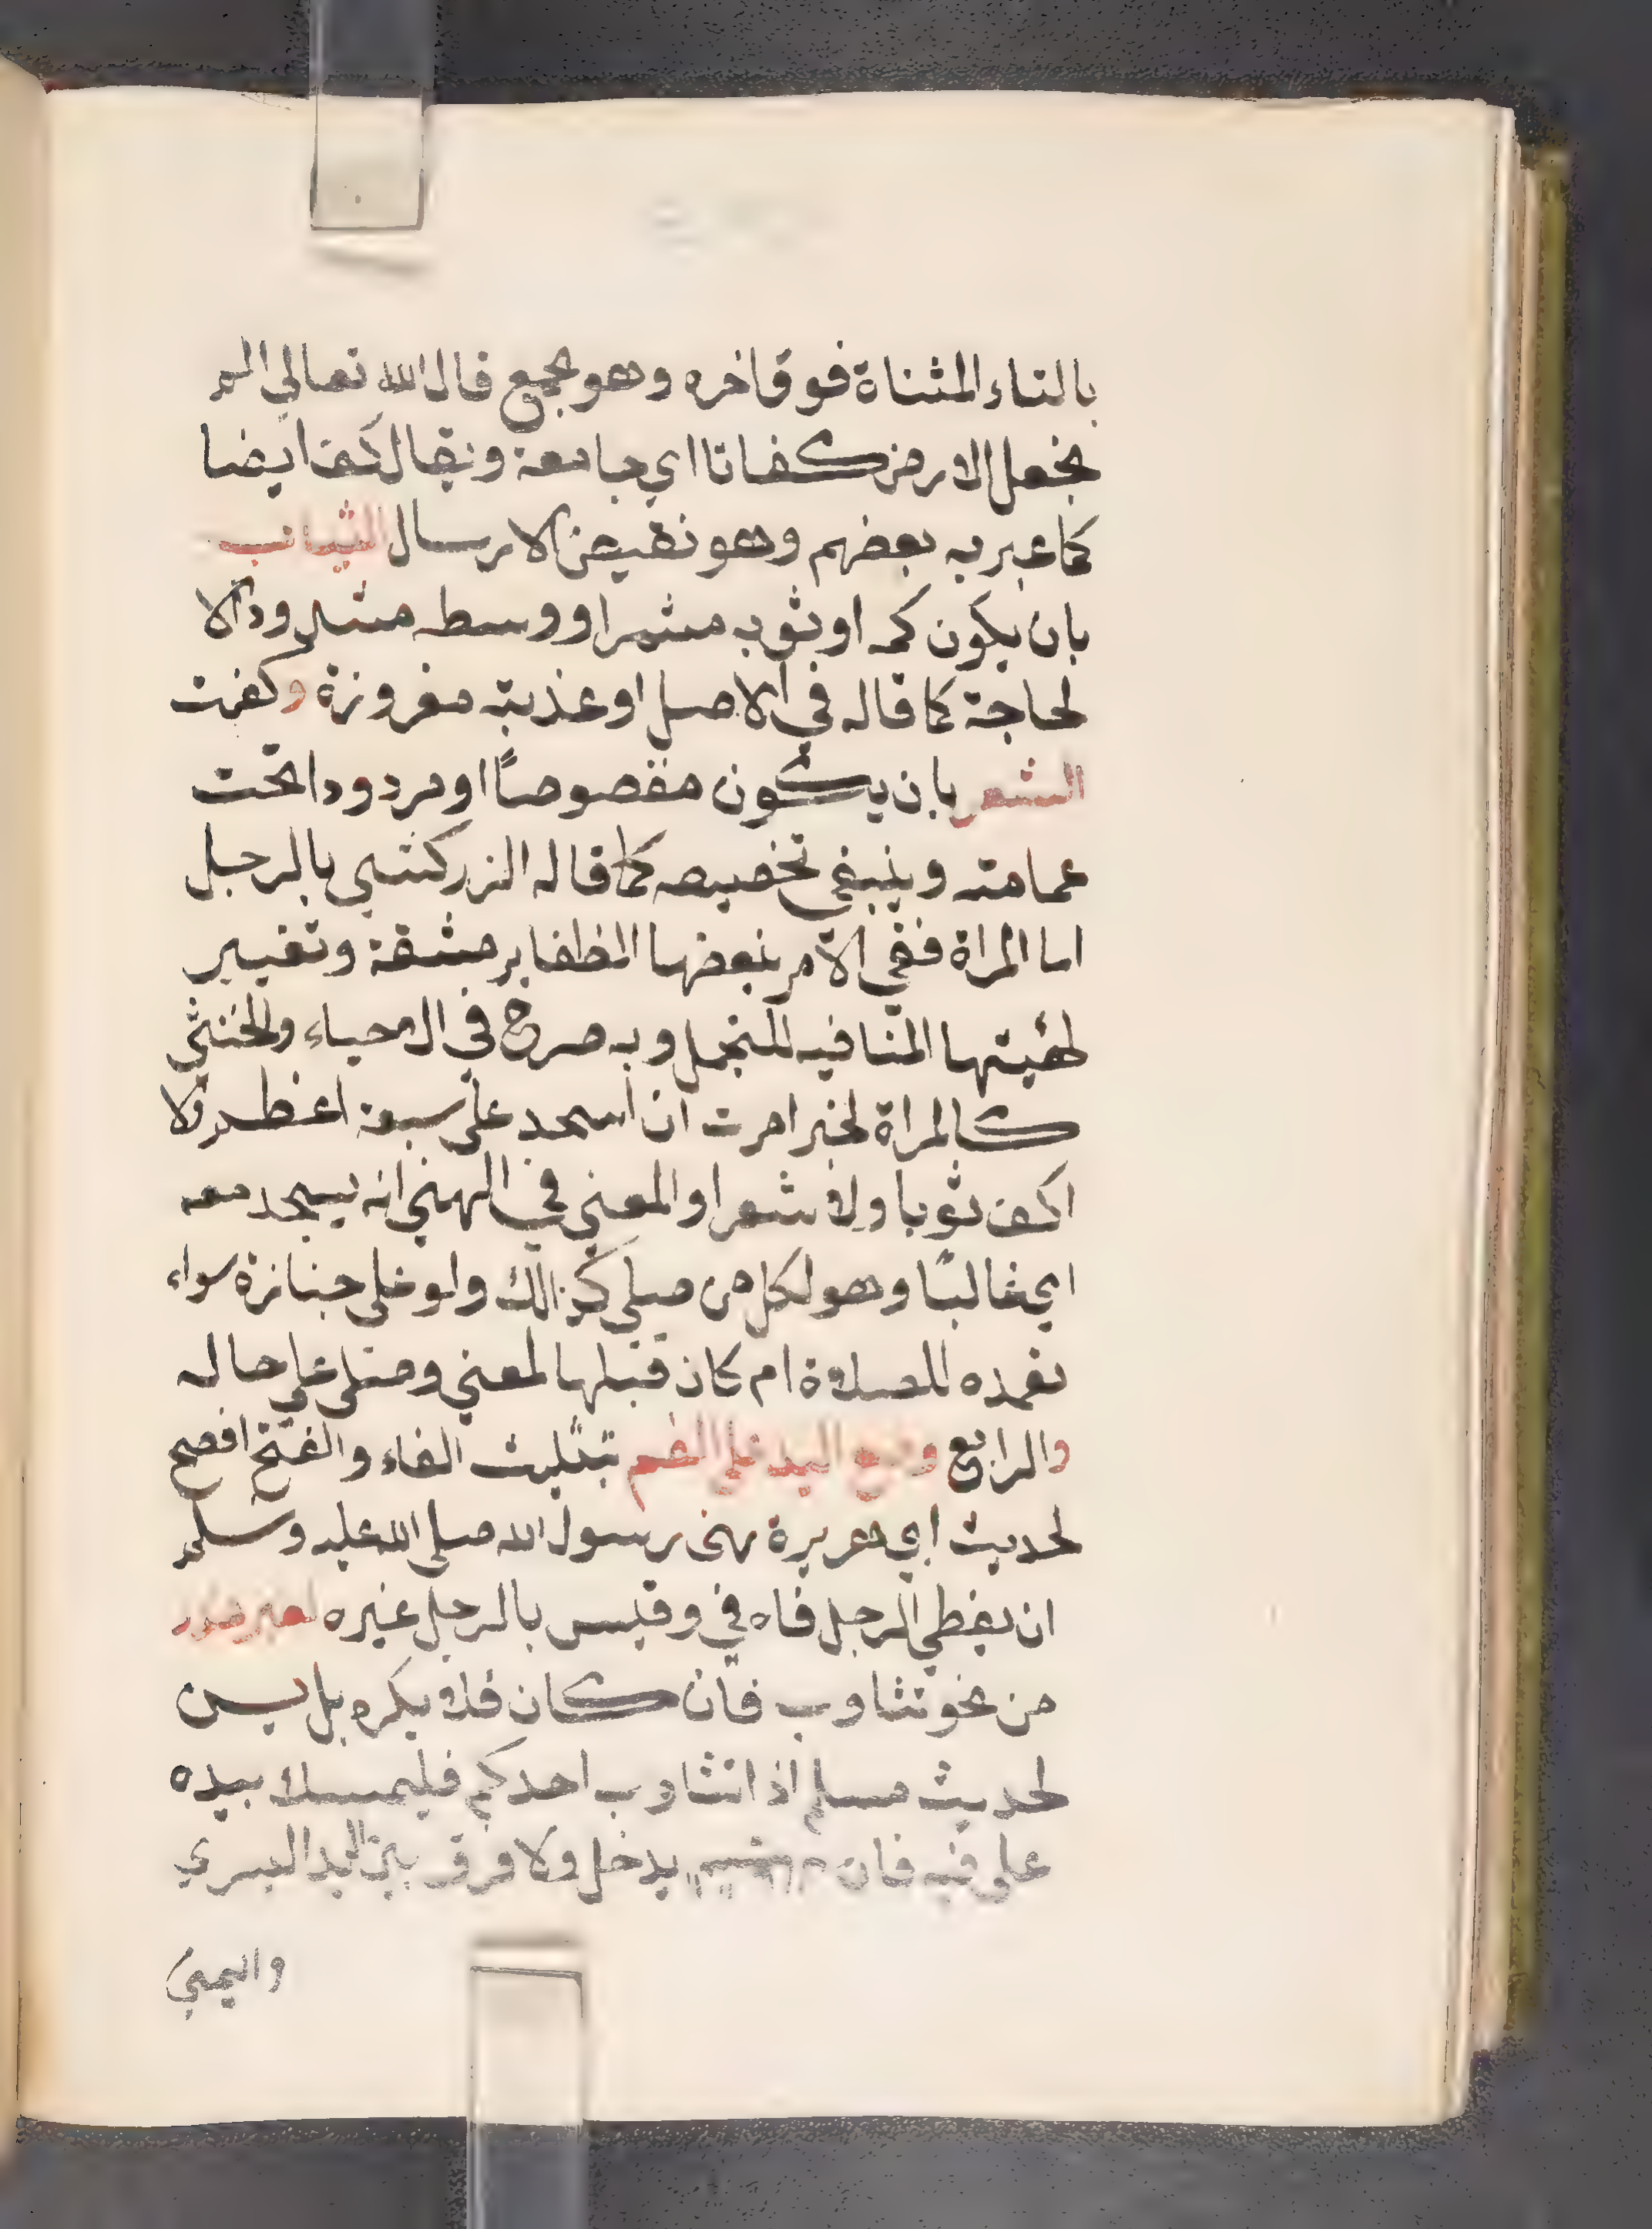 بالتاء المثناة فوق اخره وهو بجمع قال الله تعالي الم
نجعل الارض كفاتا اي جامعة ويقال كف ايضا
كما عبر به بعضهم وهو نقيض الارسال الثياب
بان يكون كمه او ثوبه مشمرا او وسطه مشدودا لا
لحاجة كما قاله في الاصل او عذبته مغروزة وكفت
الشعر بان يكون مقصوصًا او مردودا تحت
عمامته وينبغي تخصيصه كما قاله الزركشي بالرجل
اما المراة ففي الامر بنعضها الظفاير مشقة وتغيير
لهيتها المنافيه للتجمل وبه صرح في الاحياء والخنثي
كالمراة لخبر امرت ان اسجد على سبعة اعظم ولا
اكف ثوبا ولا شعرا والمعني في النهي انه يسجد معه
اي غالبًا وهو لكل من صلي كذالك ولو علي جنازة سواء
تعمده للصلاة ام كان قبلها لمعني وصلى علي حاله
والرابع وضع اليد علي الفم بتثليث الفاء والفتح افصح
لحديث ابي هريرة نهى رسول الله صلى الله عليه وسلم
ان يغطي الرجل فاه في وقيس بالرجل غيره لغير عذر
من نحو تثاوب فان كان فلا يكره بل يسن
لحديث مسلم اذا تثاوب احدكم فليمسك بيده
على فيه فان يدخل ولا فرق بين اليد اليسري
واليمني